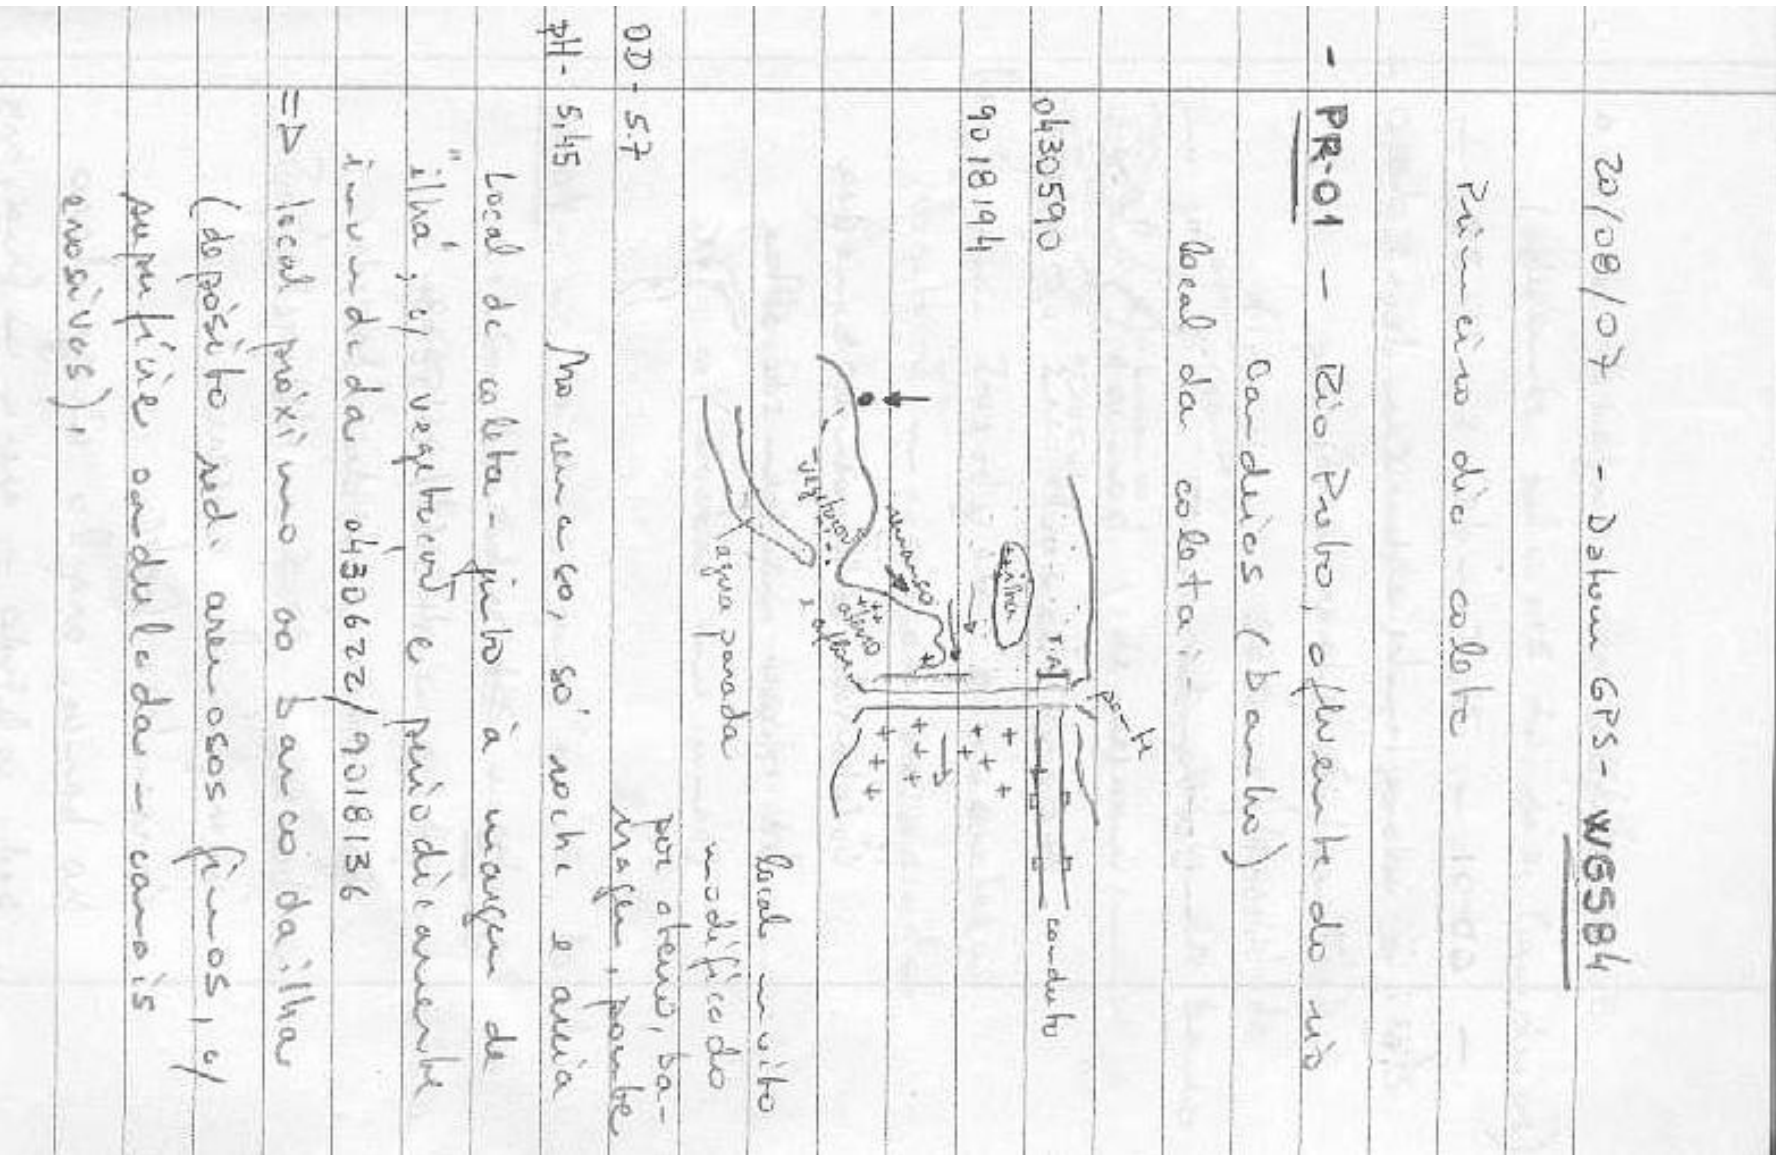 20/08/07 - Datum GPS - WGS84
Primeiro dia - coleta
- PR-01 - Rio Preto, afluente do rio
Candeias (banho)
local da coleta
0430590
9018194
ponte
conduto
ilha
remanso
aterro
vegetação
água parada
local muito
modificado
por aterro, bar-
ragem, ponte
OD - 5.7
pH - 5,45
No remanso, só rocha e areia
Local de coleta - junto à margem de
"ilha", c/ vegetação e periodicamente
inundada 0430622/9018136
=> local próximo ao banco da ilha
(depósito sed. arenosos finos, c/
superfície ondulada - canais
erosivos)